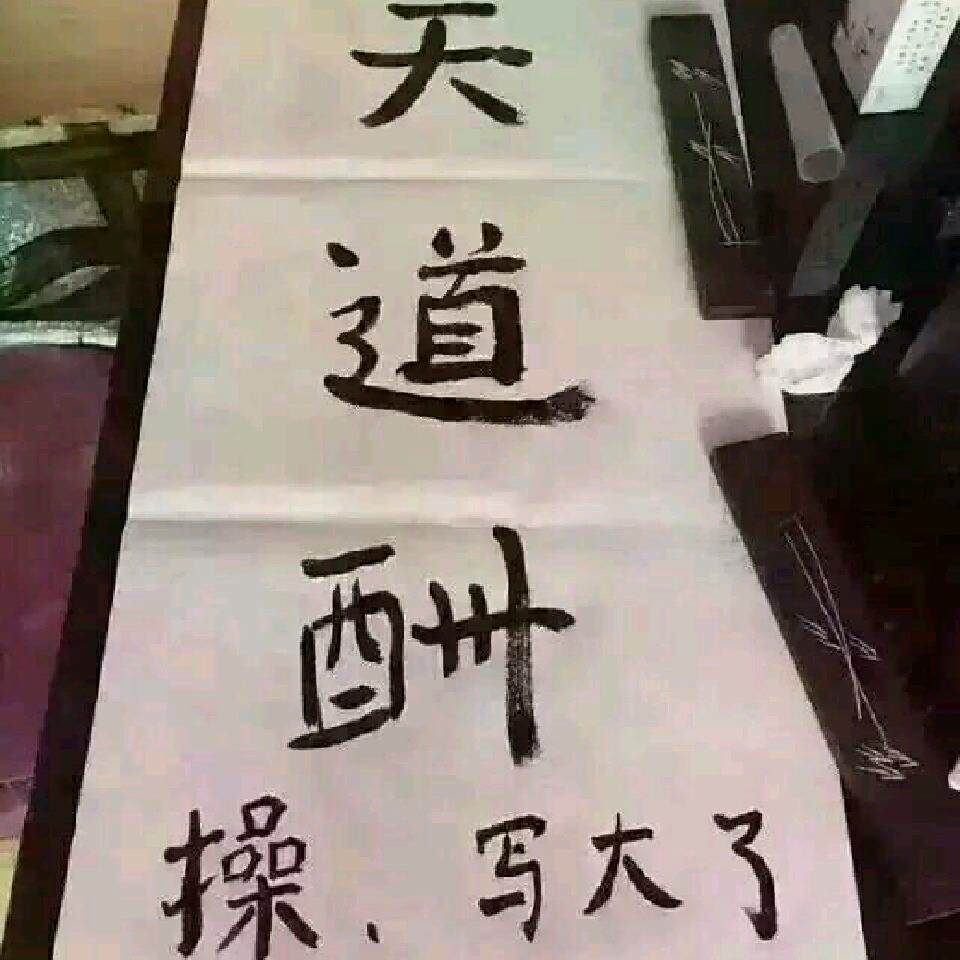 天
道
酬
操、写大了